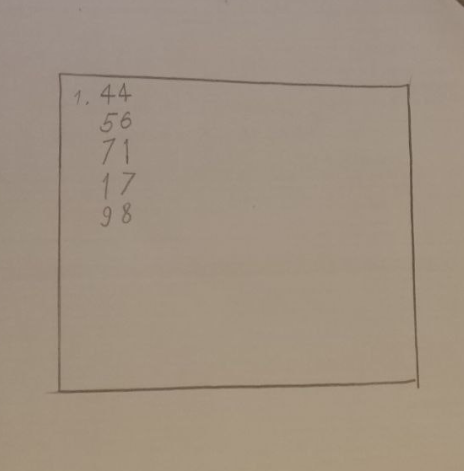 1. 44
56
71
17
98